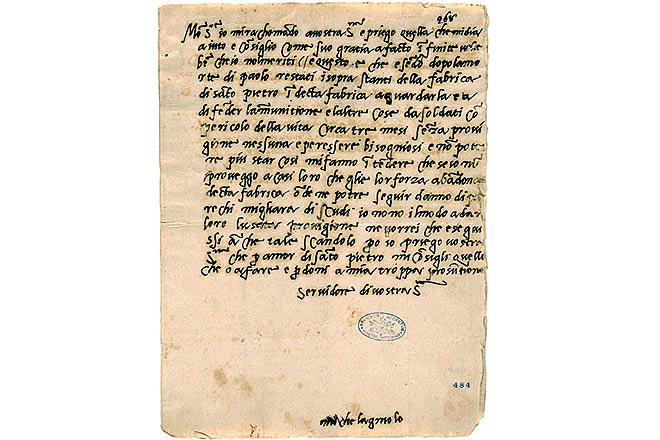 268
Mo S^re io mi rachomado a vostra S^ria e priego quella che mi dia
aiuto e cōsiglio come suo gratia a facto ī finite volte
bē che io nol meriti // e questo e che esēdo dopo la mo
rte di paolo restati i sopra stanti della fabrica
di sāto pietro ī decta fabrica a guardarla e a
difēder la munitione e laltre cose da soldati cō
pericolo della vita circa tre mesi sēza provi
gione nessuna e per essere bisogniosi e nō pote
re piu star cosi mi fanno ītēdere che se io nō
proveggo a casi loro che glie lor forza abādona
decta fabrica ōde ne potre seguir danno di pa
rechi migliara di scudi io no no il modo a dar
loro provigione ne vorrei che seguis
si ā che tale scādolo po io priego vostra
S^ria che p amor di sāto pietro mi cōsigli quello
che o a fare e p doni a mia troppa prosūtione
Servidore di vostra S^ria
484
michelagniolo